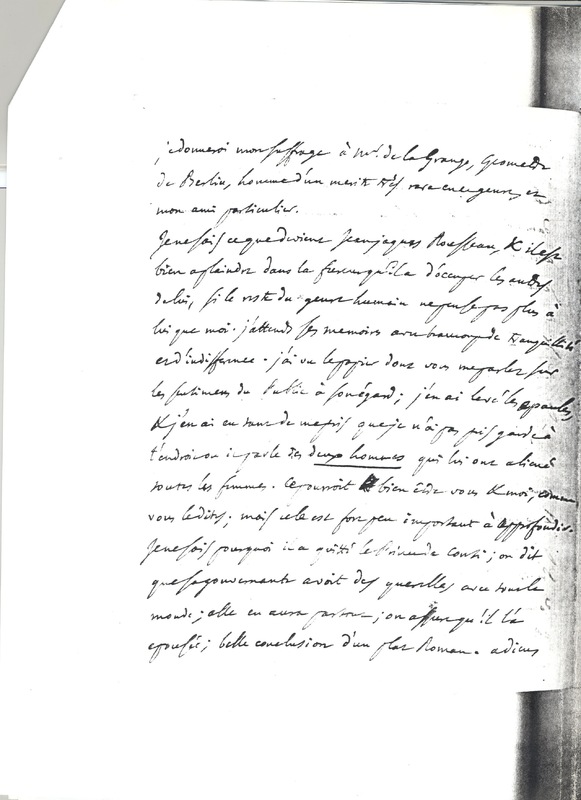 je donnerai mon suffrage à Mr. de la Grange, Geometre
de Berlin, homme d'un merite très rare en ce genre, et
mon ami particulier.
Je ne sais ce que devient Jean jaques Rousseau, & il est
bien à plaindre dans la fureur qu'il a d'occuper les autres
de lui, si le reste du genre humain ne pense pas plus à
lui que moi. j'attends ses memoires avec beaucoup de tranquillité
et d'indifference. j'ai vu le papier dont vous me parlez sur
les sentimens du Public à son égard; j'en ai levé les epaules,
& j'en ai eu tant de mepris que je n'ai pas pris garde à
l'endroit où il parle des deux hommes qui lui ont aliené
toutes les femmes. Ce pourroit bien être vous & moi, comme
vous le dites; mais cela est fort peu important à approfondir.
Je ne sais pourquoi il a quitté le Prince de Conti; on dit
que sa gouvernante avoit des querelles avec tout le
monde; elle en aura partout; on assure qu'il l'a
epousée; belle conclusion d'un plat Roman. adieu